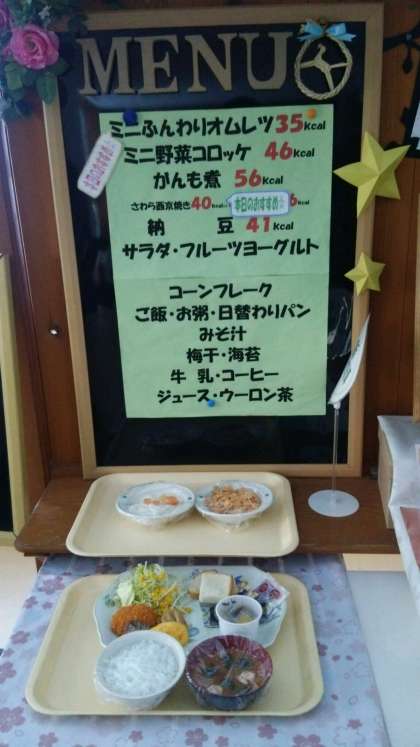 MENU
ミニふんわりオムレツ 35Kcal
ミニ野菜コロッケ 46Kcal
がんも煮 56Kcal
本日のおすすめ
さわら西京焼き 40Kcal
本日のおすすめ☆
6Kcal
納 豆 41Kcal
サラダ・フルーツヨーグルト
コーンフレーク
ご飯・お粥・日替わりパン
みそ汁
梅干・海苔
牛 乳・コーヒー
ジュース・ウーロン茶